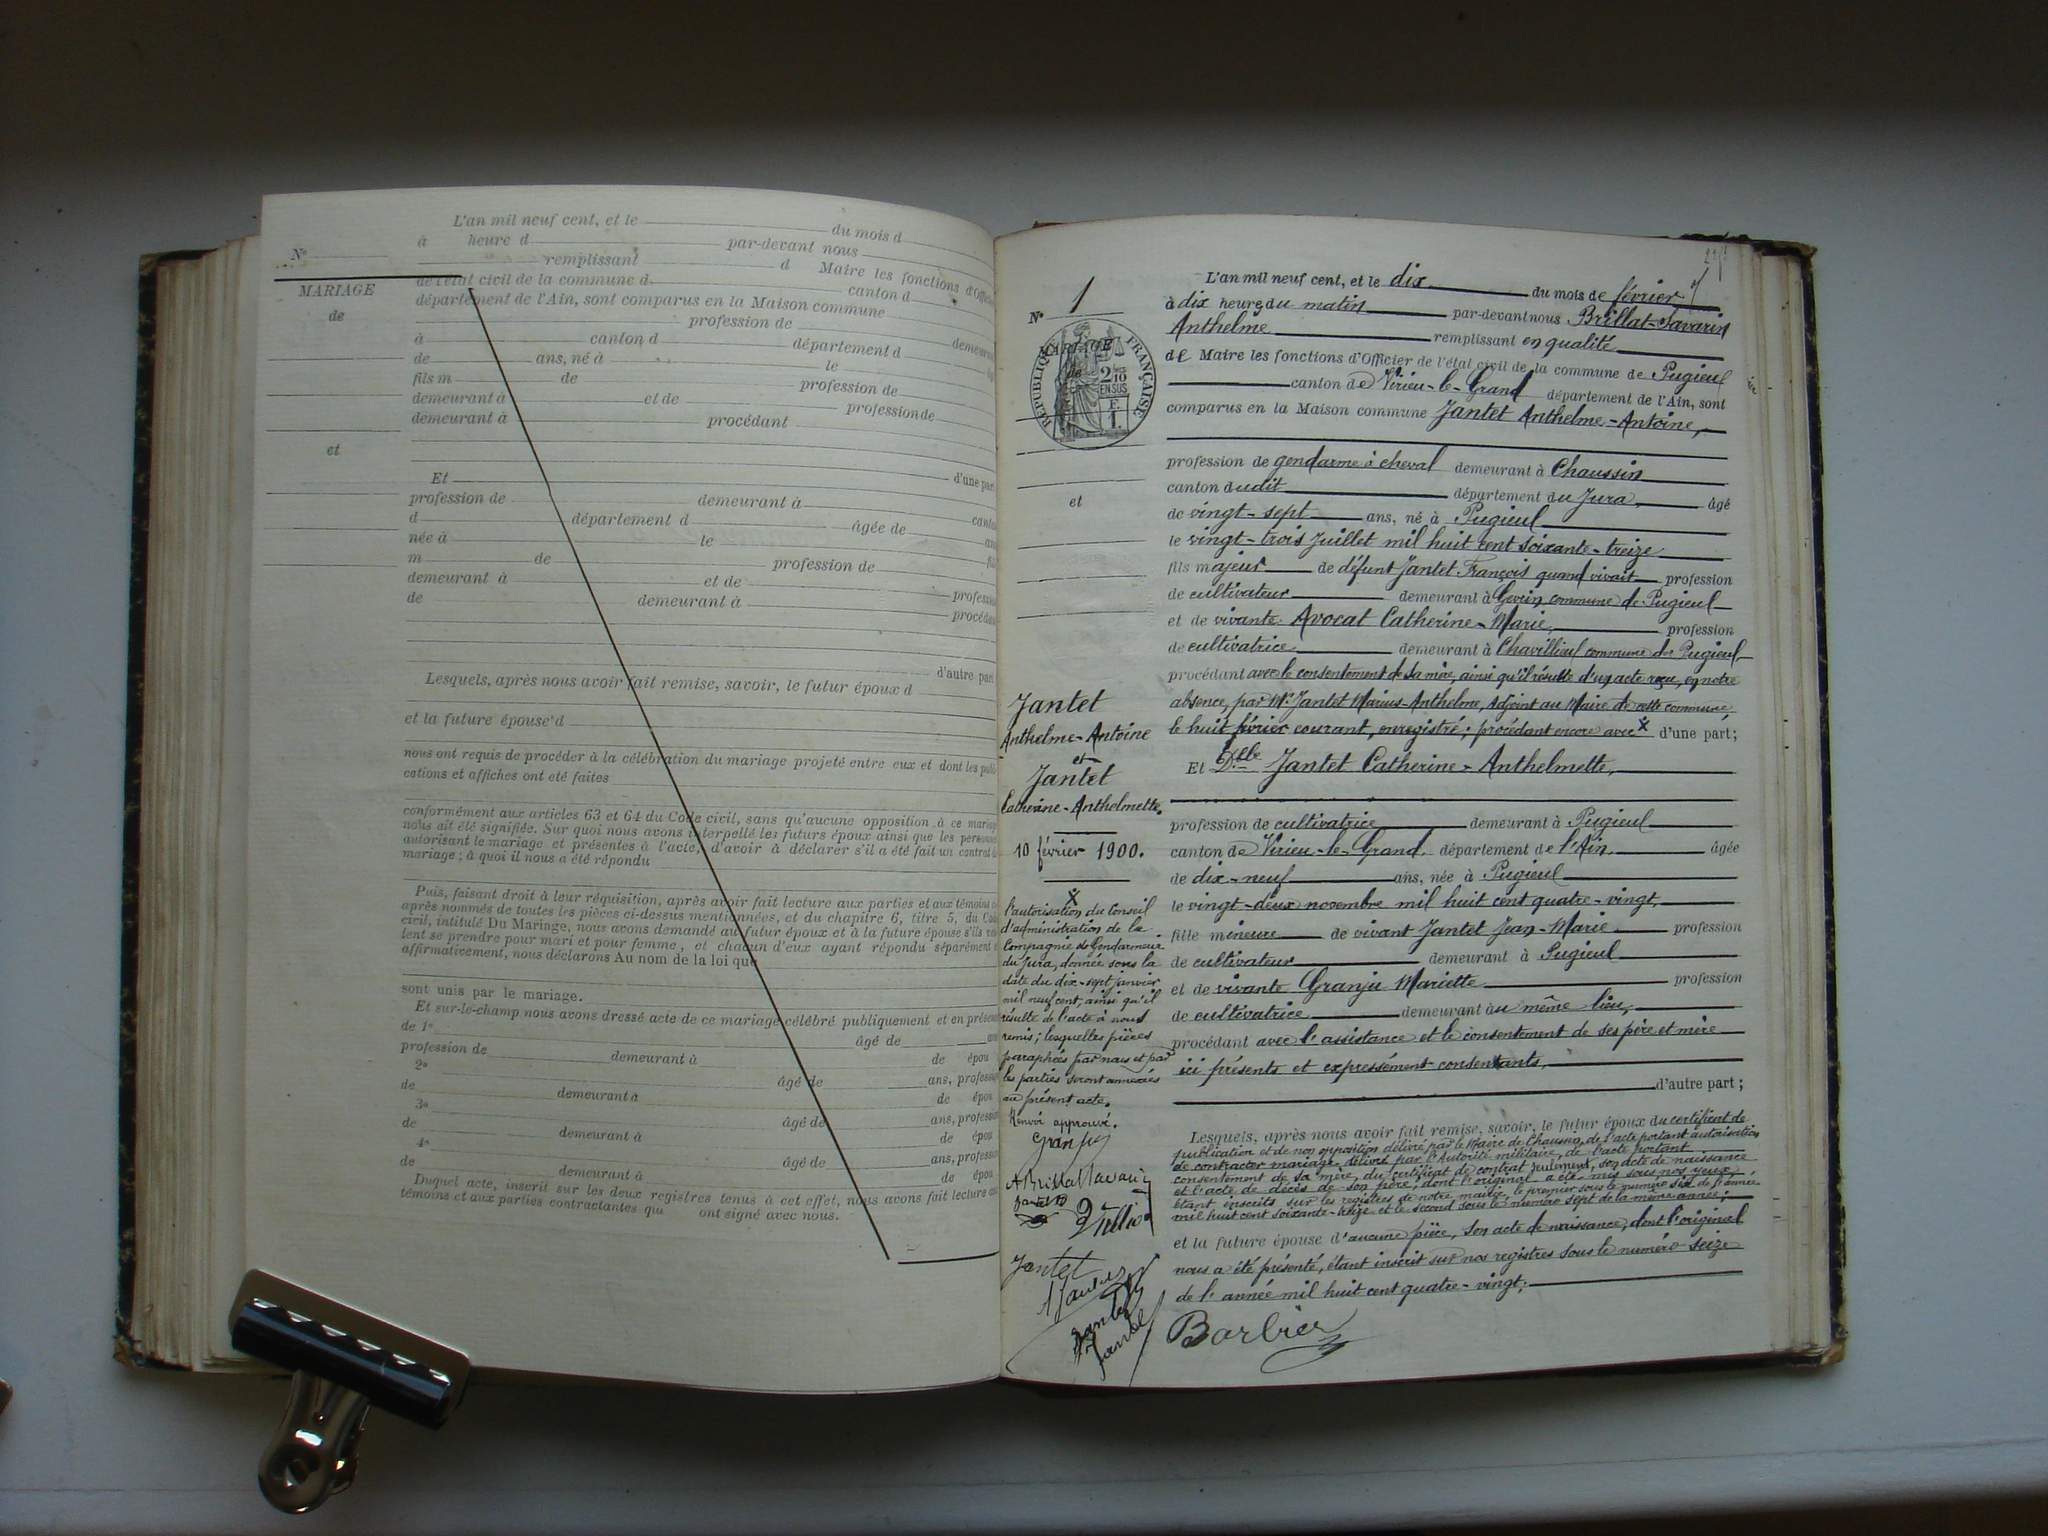 L'an mil neuf cent, et le
du mois d
à heure d
par-devant nous
remplissant d Maire les fonctions d'Offici
de l'état civil de la commune d
canton d
département de l'Ain, sont comparus en la Maison commune
profession de
demeurant
à canton d département d
de ans, né à le
fils m de profession de
demeurant à et de profession de
demeurant à procédant
Nº
MARIAGE
de
et
Et d'une part
profession de demeurant à
canton
d département d âgée de
née à le
m de profession de
demeurant à et de
profession
de demeurant à
procédan
d'autre part
Lesquels, après nous avoir fait remise, savoir, le futur époux d
et la future épouse d
nous ont requis de procéder à la célébration du mariage projeté entre eux et dont les publi
cations et affiches ont été faites
conformément aux articles 63 et 64 du Code civil, sans qu'aucune opposition à ce mariage
nous ait été signifiée. Sur quoi nous avons interpellé les futurs époux ainsi que les personnes
autorisant le mariage et présentes à l'acte, d'avoir à déclarer s'il a été fait un contrat de
mariage ; à quoi il nous a été répondu
Puis, faisant droit à leur réquisition, après avoir fait lecture aux parties et aux témoins ci-
après nommés de toutes les pièces ci-dessus mentionnées, et du chapitre 6, titre 5, du Code
civil, intitulé Du Mariage, nous avons demandé au futur époux et à la future épouse s'ils veu
lent se prendre pour mari et pour femme, et chacun d'eux ayant répondu séparément et
affirmativement, nous déclarons Au nom de la loi que
sont unis par le mariage.
Et sur-le-champ nous avons dressé acte de ce mariage célébré publiquement et en présence
de 1º âgé de ans
profession de demeurant à de épou
2º âgé de ans, profession
de demeurant à de épou
3º âgé de ans, profession
de demeurant à de épou
4º âgé de ans, profession
de demeurant à de épou
Duquel acte, inscrit sur les deux registres tenus à cet effet, nous avons fait lecture aux
témoins et aux parties contractantes qui ont signé avec nous.
Nº 1
MARIAGE
de
RÉPUBLIQUE FRANÇAISE
2/10
EN SUS
E.
1.
et
Jantet
Anthelme-Antoine
et
Jantet
Catherine-Anthelmette.
10 février 1900.
X
l'autorisation du Conseil
d'administration de la
Compagnie de Gendarmerie
du Jura, donnée sous la
date du dix-sept janvier
mil neuf cent, ainsi qu'il
résulte de l'acte à nous
remis ; lesquelles pièces
paraphées par nous et par
les parties seront annexées
au présent acte.
Renvoi approuvé.
Granju
A Brillat Savarin
Jantet
Jantet
L'an mil neuf cent, et le dix du mois de février
à dix heures du matin par-devant nous Brillat-Savarin
Anthelme remplissant en qualité
de Maire les fonctions d'Officier de l'état civil de la commune de Pugieul
canton de Virieu-le-Grand département de l'Ain, sont
comparus en la Maison commune Jantet Anthelme-Antoine,
profession de gendarme à cheval demeurant à Chaussin
canton dudit département du Jura, âgé
de vingt-sept ans, né à Pugieul
le vingt-trois Juillet mil huit cent soixante-treize
fils majeur de défunt Jantet François quand vivait profession
de cultivateur demeurant à Gevrin commune de Pugieul
et de vivante Avocat Catherine-Marie, profession
de cultivatrice demeurant à Chavillieul commune de Pugieul
procédant avec le consentement de sa mère, ainsi qu'il résulte d'un acte reçu, en notre
absence, par Mr Jantet Marius-Anthelme, Adjoint au Maire de cette commune
le huit février courant, enregistré ; procédant encore avec X d'une part ;
Et Delle Jantet Catherine-Anthelmette,
profession de cultivatrice demeurant à Pugieul
canton de Virieu-le-Grand, département de l'Ain, âgée
de dix-neuf ans, née à Pugieul
le vingt-deux novembre mil huit cent quatre-vingt,
fille mineure de vivant Jantet Jean-Marie profession
de cultivateur demeurant à Pugieul
et de vivante Granju Mariette profession
de cultivatrice demeurant au même lieu,
procédant avec l'assistance et le consentement de ses père et mère
ici présents et expressément consentants,
d'autre part ;
Lesquels, après nous avoir fait remise, savoir, le futur époux du certificat de
publication et de non opposition délivré par le Maire de Chaussin, de l'acte portant autorisation
de contracter mariage, délivré par l'Autorité militaire, de l'acte portant
consentement de sa mère, du certificat de contrat seulement, son acte de naissance
et l'acte de décès de son père, dont l'original a été mis sous nos yeux,
étant inscrits sur les registres de notre mairie, le premier sous le numéro six de l'année
mil huit cent soixante-treize et le second sous le numéro sept de la même année ;
et la future épouse d'aucune pièce, son acte de naissance, dont l'original
nous a été présenté, étant inscrit sur nos registres sous le numéro seize
de l'année mil huit cent quatre-vingt ;
Barbier